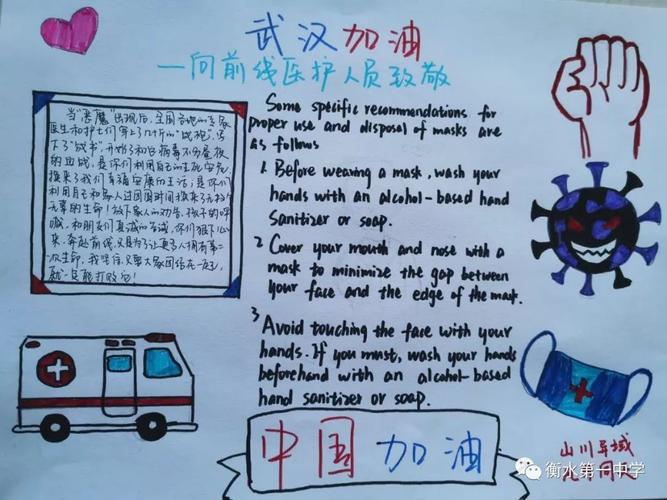 武汉加油
一向前线医护人员致敬
当"恶魔"出现后,全国各地的专家
医生和护士们穿上了几斤的"战袍",写
下了"战书",开始了和白病毒不分昼夜
的血战,是你们利用自己的生死安危
换来了我们幸福安康的生活;是你们
利用自己和家人过团圆时间换来了
无辜的生命!放下家人的劝告,孩子的呼
喊,和朋友们真诚的告诫,你们狠下心
来,奔赴前线,只是为了让更多人拥有第二
次生命,我坚信,只要大家团结在一起,
就一定能打败它!
Some specific recommendations for
proper use and disposal of masks are
as follows
1. Before wearing a mask, wash your
hands with an alcohol-based hand
sanitizer or soap.
2 Cover your mouth and nose with a
mask to minimize the gap between
your face and the edge of the mask.
3 Avoid touching the face with your
hands. If you must, wash your hands
beforehand with an alcohol-based
hand sanitizer or soap.
中国加油
山川异域
衡水第一中学